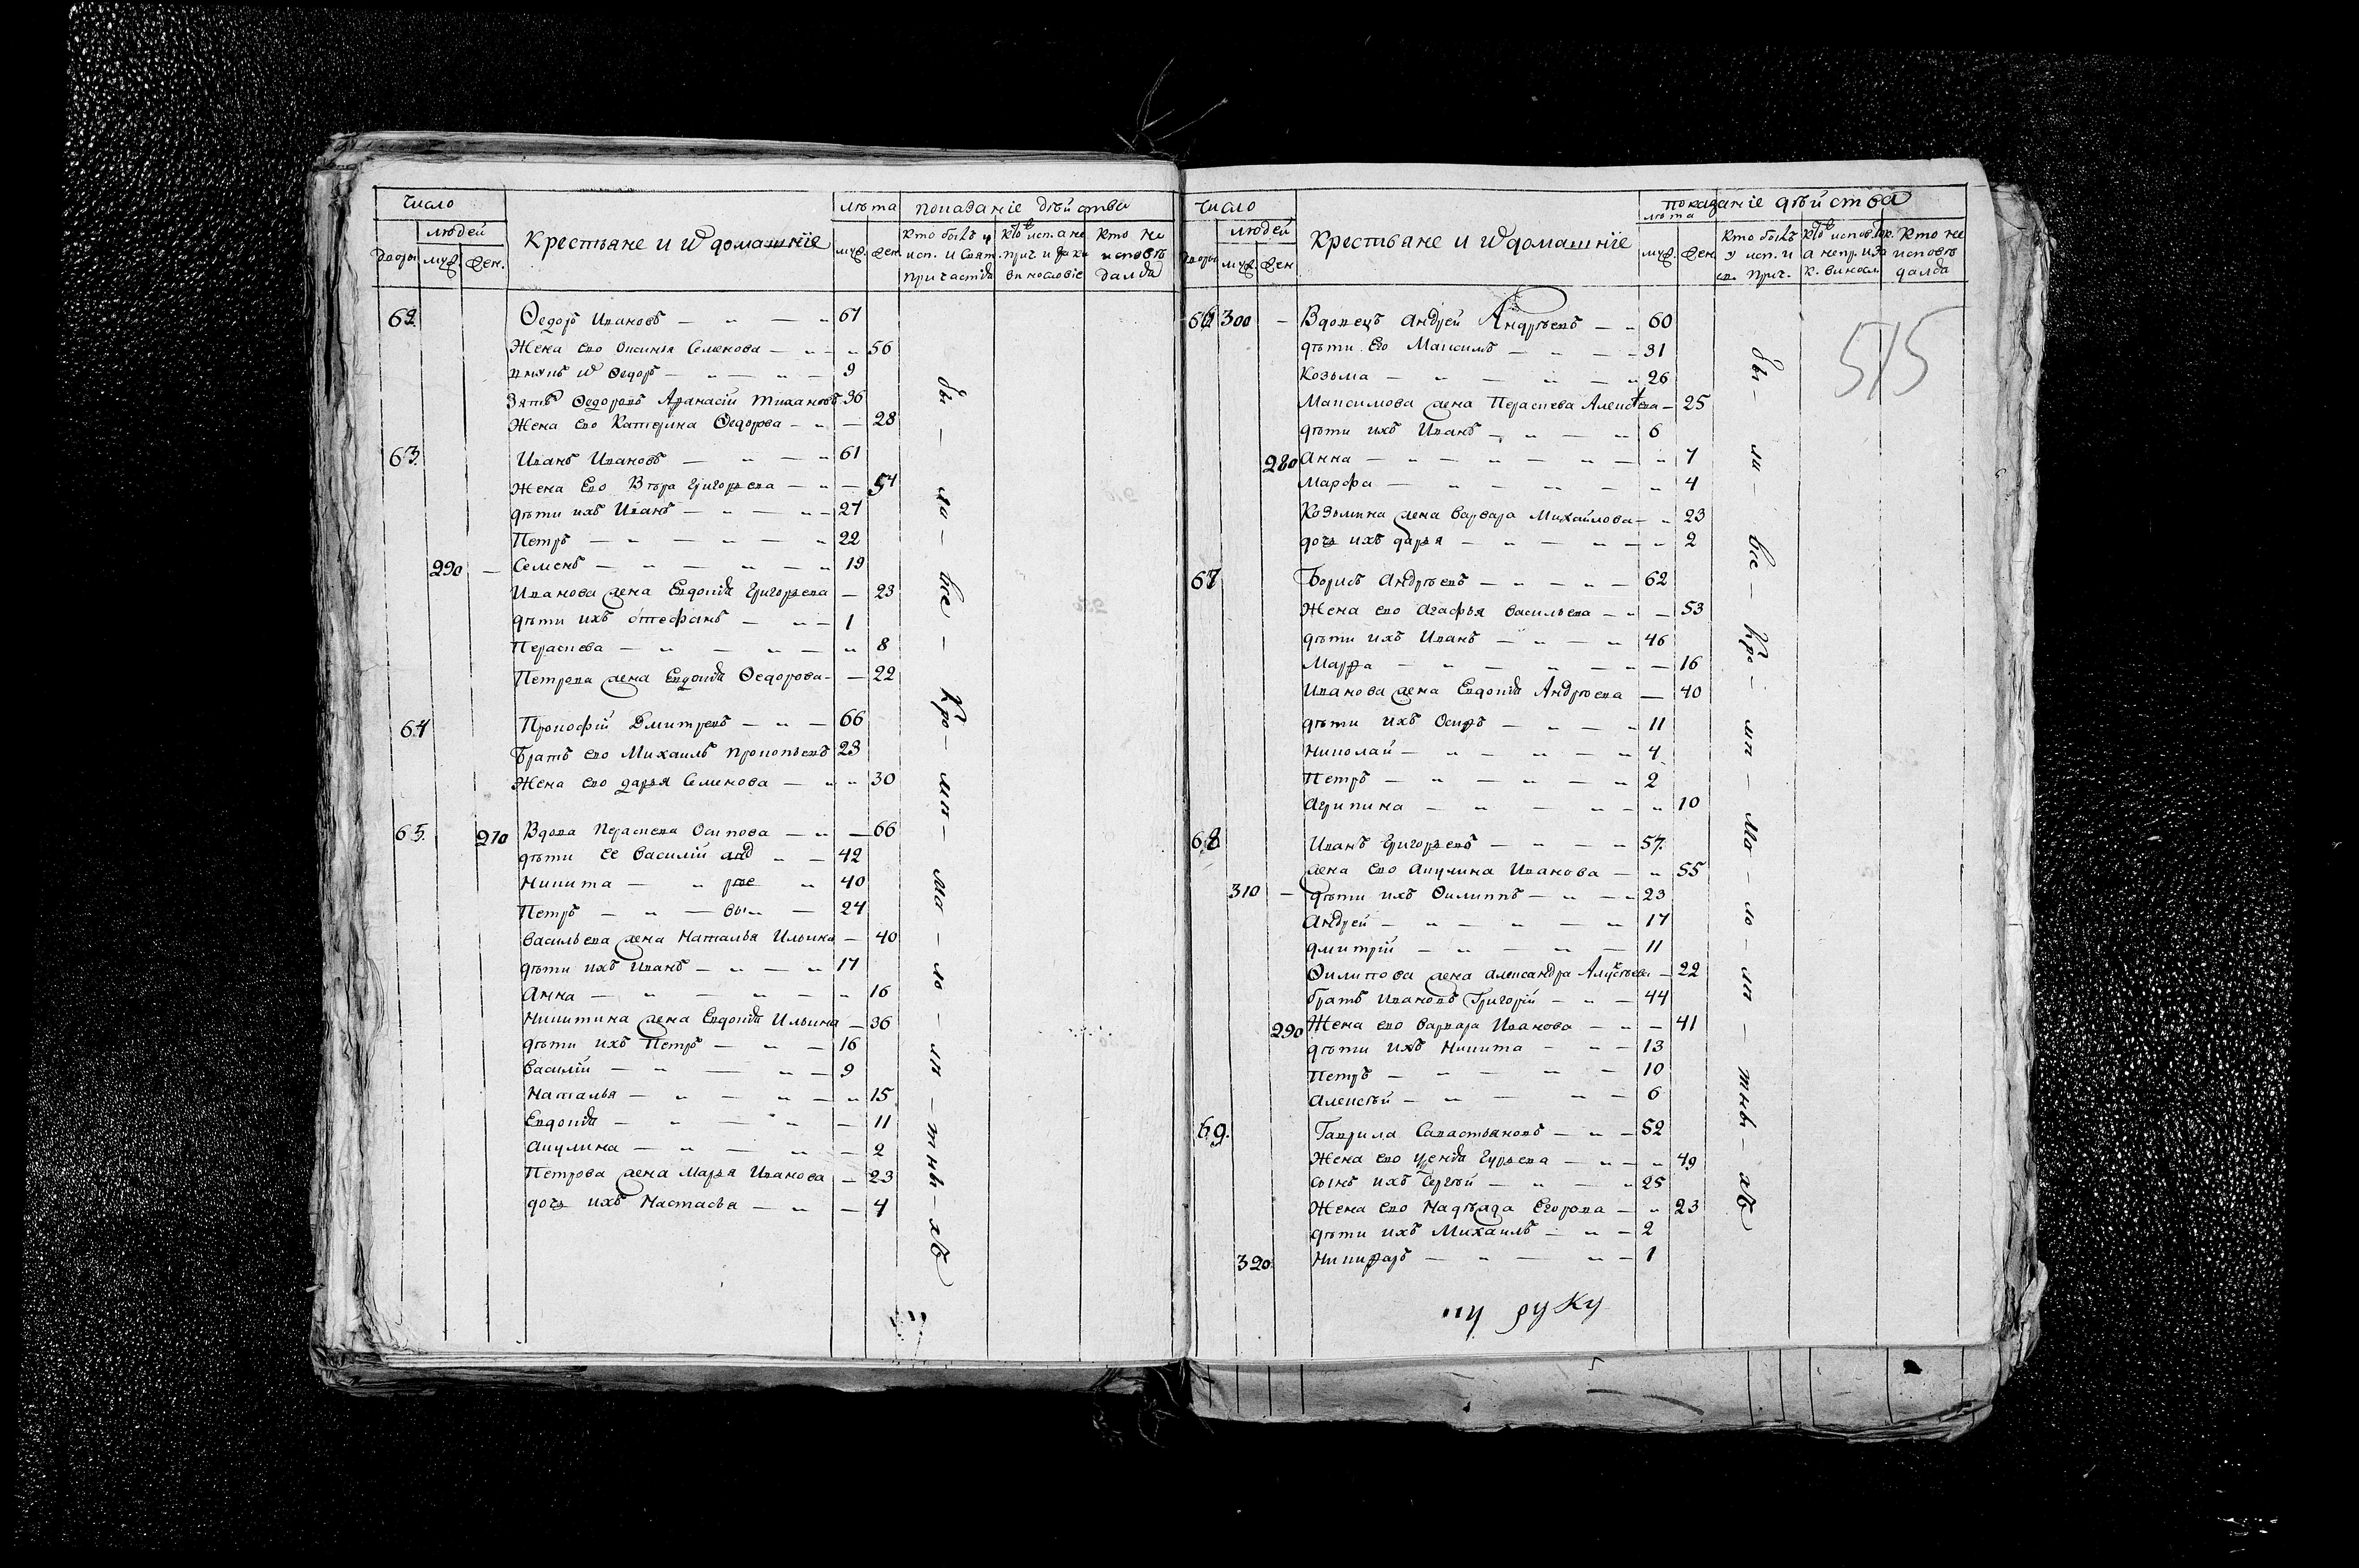 Число
людей
дворы муж. жен.
Крестьяне и ѿ домашнїе
лѣта
муж. жен.
показанїе дѣйства
кто былъ у исп. и свят. причастїѧ
кто исп. а не прич. и за ка винословїе
кто не исповѣдалсѧ
62. Ѳедоръ Ивановъ — „ — „ 61
Жена ево Оксинья Семенова — „ „ 56
внукъ Ѳедоръ — „ — „ — 9
Зять Ѳедоровъ Афанасїй Тихановъ 36
Жена ево Катерина Ѳедорова — „ — 28
63. Иванъ Ивановъ — „ — „ 61
Жена Ево Вѣра Григорьева — „ — 54
дѣти ихъ Иванъ — „ — „ — 27
Петръ — „ — „ — „ 22
290 — Семенъ — „ — „ — „ 19
Иванова жена Евдокїѧ Григорьева — 23
дѣти ихъ Стефанъ — „ — 1
Пераскева — „ — „ — „ 8
Петрова жена Евдокїѧ Ѳедорова — — 22
64 Прокофїй Дмитревъ — „ — 66
Братъ ево Михаилъ Прокопьевъ 23
Жена ево Дарья Семенова — „ „ 30
65. 270 Вдова Пераскева Осипова — „ — 66
дѣти ее Василїй анд „ — 42
Никита — „ рѣе „ 40
Петръ — „ — вы „ — 24
Васильева жена Наталья Ильина — 40
дѣти ихъ Иванъ — „ — „ 17
Анна — „ — „ — „ 16
Никитина жена Евдокїѧ Ильина — 36
дѣти ихъ Петръ — „ — 16
Василїй — „ — „ — 9
Наталья — „ — „ — „ 15
Евдокїѧ — „ — „ — 11
Акулина — „ — „ — 2
Петрова жена Марья Иванова — 23
дочь ихъ Настасья — „ — 4
бы — ли — все — Кро — мѣ — мо — ло — лѣ — тнѣ — хъ
Число
людей
дворы муж. жен.
Крестьяне и ѿ домашнїе
лѣта
муж. жен.
показанїе дѣйства
кто былъ у исп. и св. прич.
кто исповѣд. а не пр. и за к. виносл.
кто не исповѣдалсѧ
515
66 300 — Вдовецъ Андрей Андрѣевъ — „ 60
дѣти Ево Максимъ — „ — — 31
Козьма — „ — „ — „ 26
Максимова жена Пераскева Алексѣева — 25
дѣти ихъ Иванъ — „ — „ 6
280 Анна — „ — „ — „ — „ 7
Марфа — „ — „ — „ 4
Козьмина жена Варвара Михайлова — „ 23
дочь ихъ Дарья — „ — „ — „ 2
67 Борисъ Андрѣевъ — „ — „ — 62
Жена ево Агафья Васильева — „ — 53
дѣти ихъ Иванъ — „ — „ 46
Марфа — „ — „ — „ — 16
Иванова жена Евдокїѧ Андрѣева — 40
дѣти ихъ Осипъ — „ — „ — 11
Николай — „ — „ — „ 4
Петръ — „ — „ — „ 2
Агрипина — „ — „ — „ 10
68 Иванъ Григорьевъ — „ — „ — 57.
жена ево Акулина Иванова — „ 55
310 — дѣти ихъ Филиппъ — „ — „ 23
Андрей — „ — „ — „ 17
Дмитрїй — „ — „ — 11
Филипова жена Александра Алексѣева — 22
братъ Ивановъ Григорїй — „ — 44
290 Жена ево Варвара Иванова — „ — 41
дѣти ихъ Никита — „ — 13
Петръ — „ — „ — 10
Алексѣй — „ — „ — 6
69. Гаврила Савастьяновъ — „ — 52
Жена ево Гурьева — „ — „ 49
сынъ ихъ Сергѣй — „ — „ 25
Жена ево Надѣжда Егорова — „ 23
дѣти ихъ Михаилъ — „ — 2
320 Никифоръ — „ — „ — 1
бы — ли — все — Кро — мѣ — мо — ло — лѣ — тнѣ — хъ
руку